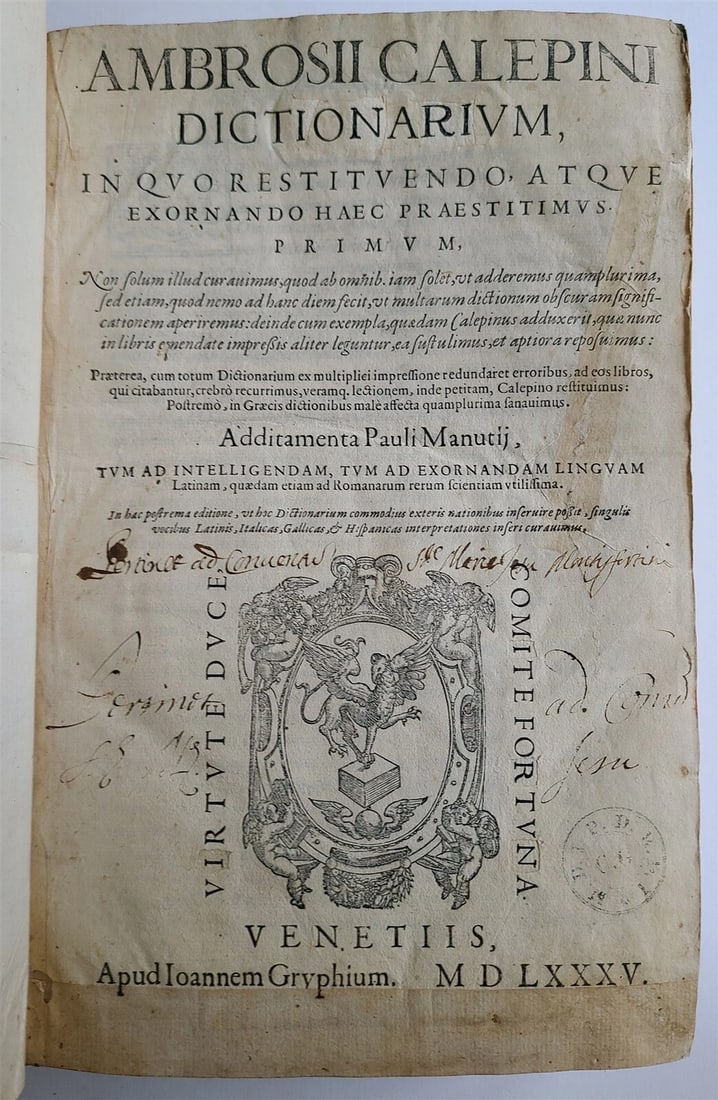 AMBROSII CALEPINI
DICTIONARIVM,
IN QVO RESTITVENDO, ATQVE
EXORNANDO HAEC PRAESTITIMVS.
PRIMVM,
Non solum illud curauimus, quod ab omnib. iam solet, vt adderemus quamplurima,
sed etiam, quod nemo ad hanc diem fecit, vt multarum dictionum obscuram signifi-
cationem aperiremus: deinde cum exempla, quædam Calepinus adduxerit, quæ nunc
in libris emendate impreßis aliter leguntur, ea sustulimus, et aptiora reposuimus:
Præterea, cum totum Dictionarium ex multipliei impressione redundaret erroribus, ad eos libros,
qui citabantur, crebrò recurrimus, veramq. lectionem, inde petitam, Calepino restituimus:
Postremò, in Græcis dictionibus malè affecta quamplurima sanauimus.
Additamenta Pauli Manutij,
TVM AD INTELLIGENDAM, TVM AD EXORNANDAM LINGVAM
Latinam, quædam etiam ad Romanarum rerum scientiam vtilissima.
In hac postrema editione, vt hoc Dictionarium commodius exteris nationibus inseruire poßit, singulis
vocibus Latinis, Italicas, Gallicas, & Hispanicas interpretationes inseri curauimus.
Pertinet ad Conuentũ
VIRTVTE DVCE
COMITE FORTVNA
ad
Jesu
VENETIIS,
Apud Ioannem Gryphium. M D LXXXV.